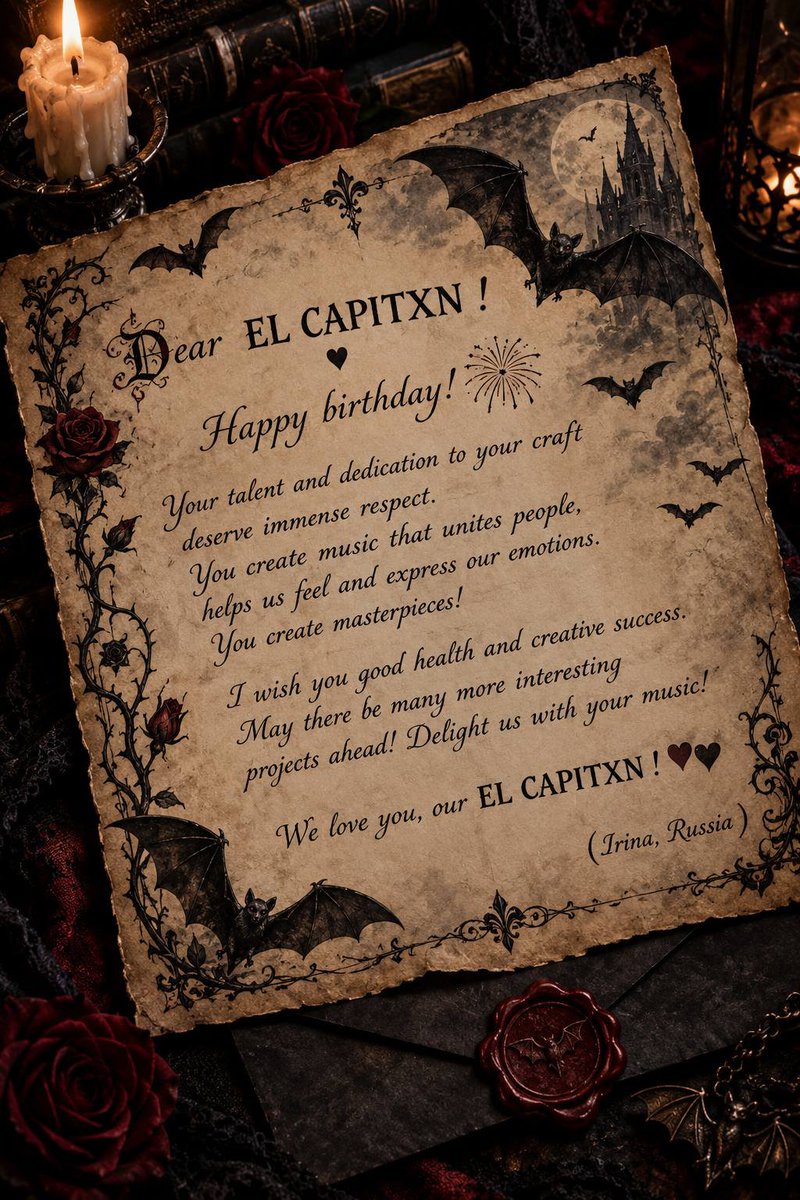 Dear EL CAPITXN !
♥
Happy birthday!
Your talent and dedication to your craft
deserve immense respect.
You create music that unites people,
helps us feel and express our emotions.
You create masterpieces!
I wish you good health and creative success.
May there be many more interesting
projects ahead! Delight us with your music!
We love you, our EL CAPITXN ! ♥♥
(Irina, Russia)